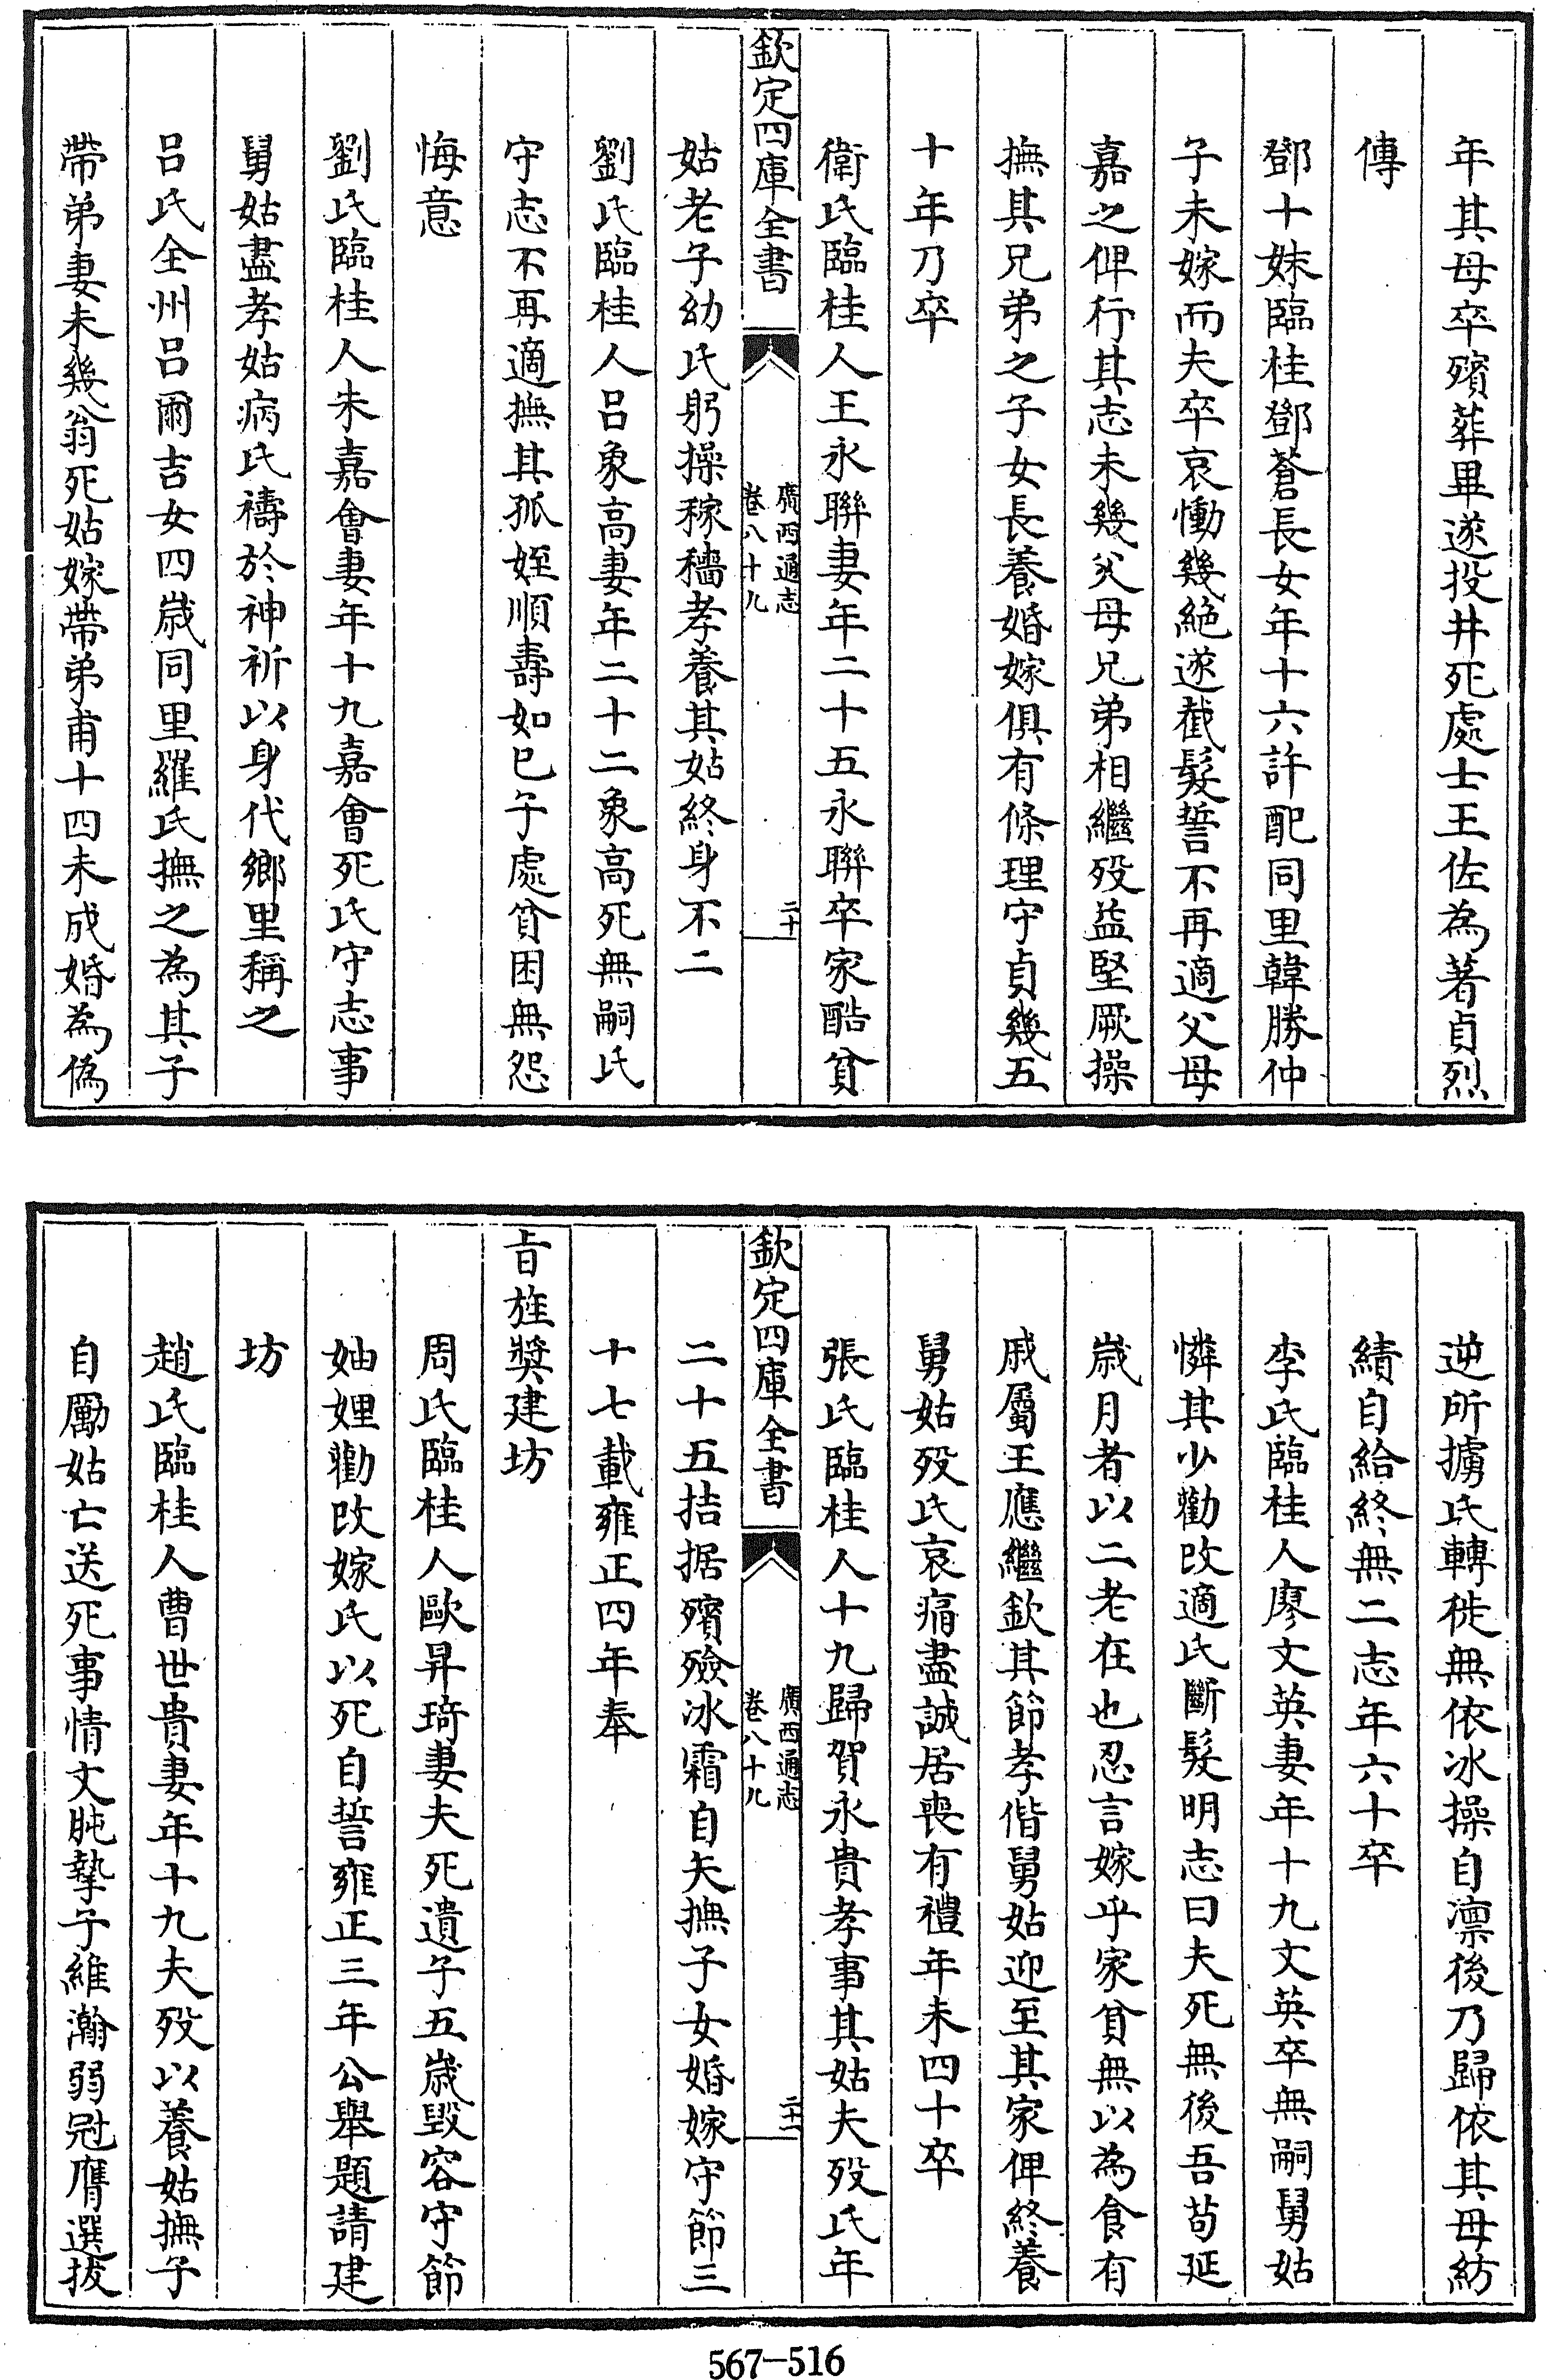 年其母卒殯葬畢遂投井死處士王佐為著貞烈
傳
鄧十妹臨桂鄧蒼長女年十六許配同里韓勝仲
子未嫁而夫卒哀慟幾絕遂截髮誓不再適父母
嘉之俾行其志未幾父母兄弟相繼歿益堅厥操
撫其兄弟之子女長養婚嫁俱有條理守貞幾五
十年乃卒
衛氏臨桂人王永聯妻年二十五永聯卒家酷貧
欽定四庫全書
廣西通志
卷八十九
二十
姑老子幼氏躬操稼穡孝養其姑終身不二
劉氏臨桂人呂象高妻年二十二象高死無嗣氏
守志不再適撫其孤姪順壽如已子處貧困無怨
悔意
劉氏臨桂人朱嘉會妻年十九嘉會死氏守志事
舅姑盡孝姑病氏禱於神祈以身代鄉里稱之
呂氏全州呂爾吉女四歲同里羅氏撫之為其子
帶弟妻未幾翁死姑嫁帶弟甫十四未成婚為偽
逆所擄氏轉徙無依冰操自凜後乃歸依其母紡
績自給終無二志年六十卒
李氏臨桂人廖文英妻年十九文英卒無嗣舅姑
憐其少勸改適氏斷髮明志曰夫死無後吾苟延
歲月者以二老在也忍言嫁乎家貧無以為食有
戚屬王應繼欽其節孝偕舅姑迎至其家俾終養
舅姑歿氏哀痛盡誠居喪有禮年未四十卒
張氏臨桂人十九歸賀永貴孝事其姑夫歿氏年
欽定四庫全書
廣西通志
卷八十九
二十一
二十五拮据殯殮冰霜自矢撫子女婚嫁守節三
十七載雍正四年奉
旨旌獎建坊
周氏臨桂人歐昇琦妻夫死遺子五歲毀容守節
妯娌勸改嫁氏以死自誓雍正三年公舉題請建
坊
趙氏臨桂人曹世貴妻年十九夫歿以養姑撫子
自勵姑亡送死事情文肫摯子維瀚弱冠膺選拔
567-516